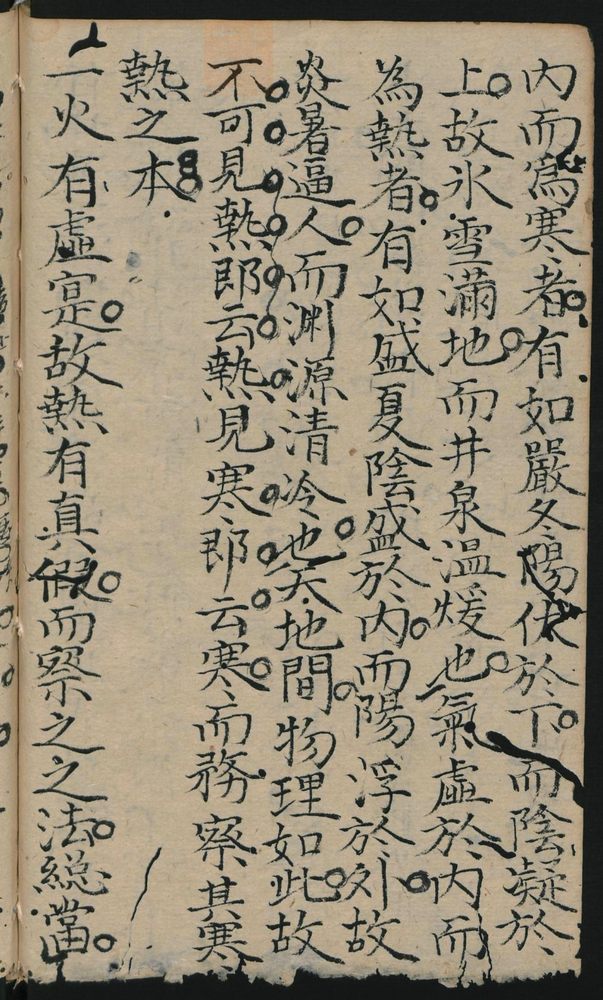 內而為寒者有如嚴冬陽伏於下而陰凝於
上故氷雪滿地而井泉溫煖也氣虛於內而
為熱者有如盛夏陰盛於內而陽浮於外故
炎暑逼人而渊源清冷也天地間物理如此故
不可見熱郎云熱見寒郎云寒而務察其寒
熱之本
一火有虛寔故熱有真假而察之之法總當